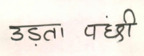 उड़ता पंछी